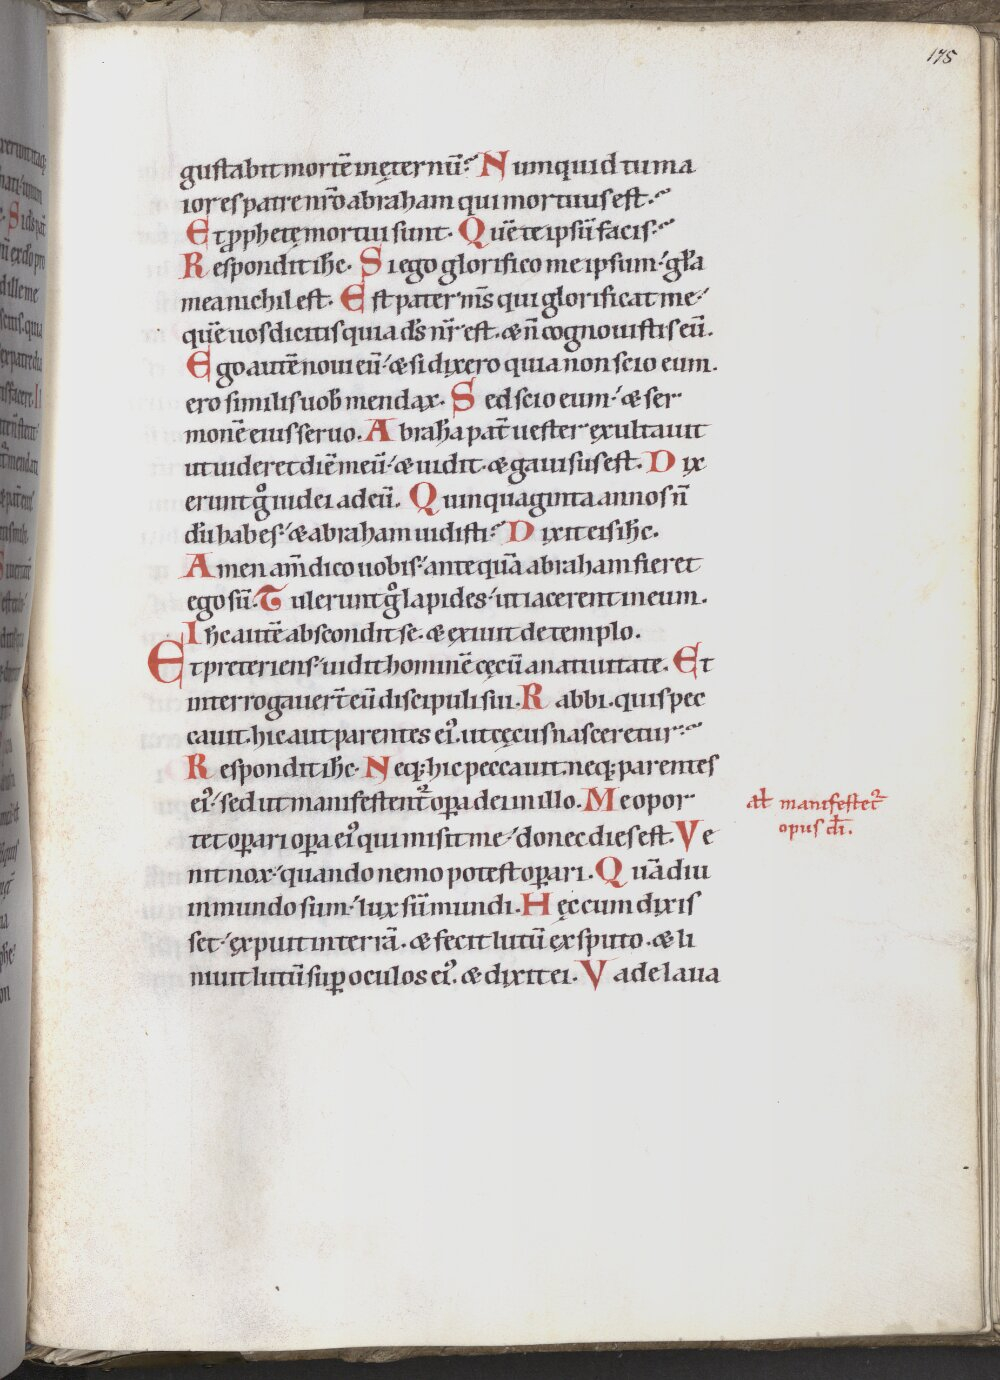 175
gustabit mortē inęternū? Numquid tu ma
ior es patre nr̄o abraham qui mortuus est?
Et ꝓphetę mortui sunt. Quē te ipsū facis?
Respondit ihc. Si ego glorifico me ipsum, gl̄a
mea nichil est. Est pater ms̄ qui glorificat me,
quē uos dicitis quia ds̄ nr̄ est. & n̄ cognouistis eū.
Ego autē noui eū, & si dixero quia non scio eum.
ero similis uob̄ mendax. Sed scio eum, & ser
monē eius seruo. Abrahā pat̄ uester exultauit
ut uideret diē meū, & uidit. & gauisus est. Dix
erunt gͦ iudei ad eū. Quinquaginta annos n̄
dū habes, & abraham uidisti? Dixit eis ihc.
Amen am̄ dico uobis, antequā abraham fieret
ego sū. Tulerunt gͦ lapides, ut iacerent in eum.
Ihc autē abscondit se. & exiuit de templo.
Et preteriens, uidit hominē cęcū a natiuitate. Et
interrogauer̄t eū discipuli sui. Rabbi. quis pec
cauit. hic aut parentes eiꝰ. ut cęcus nasceretur?
Respondit ihc. Neq; hic peccauit. neq; parentes
eiꝰ, sed ut manifestent᷑ oꝑa dei in illo. Me opor
tet oꝑari oꝑa eiꝰ qui misit me, donec dies est. Ve
nit nox, quando nemo potest oꝑari. Quādiu
in mundo sum, lux sū mundi. Hęc cum dixis
set, expuit in terrā. & fecit lutū ex sputo. & li
niuit lutū suꝑ oculos eiꝰ. & dixit ei. Vade laua
al̄ manifestet᷑
opus di̅.